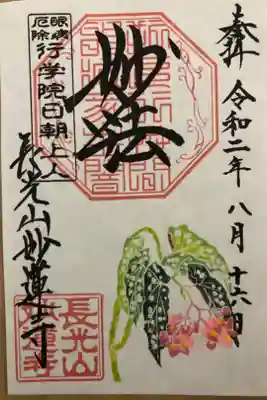 奉拝
令和二年八月十六日
妙法
眼病
厄除
行学院日朝上人
長光山妙蓮寺
長光山
妙蓮寺